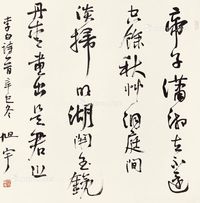 帝子瀟湘去不還
空餘秋艸洞庭間
淡掃明湖開玉鏡
丹青畫出是君山
李白詩一首辛巳冬旭宇